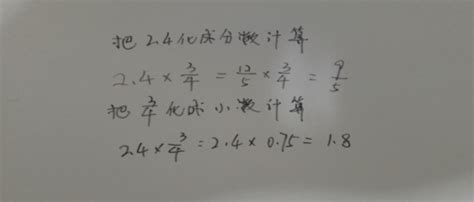 把2.4化成分数计算
2.4×3/4=12/5×3/4=9/5
把3/4化成小数计算
2.4×3/4=2.4×0.75=1.8